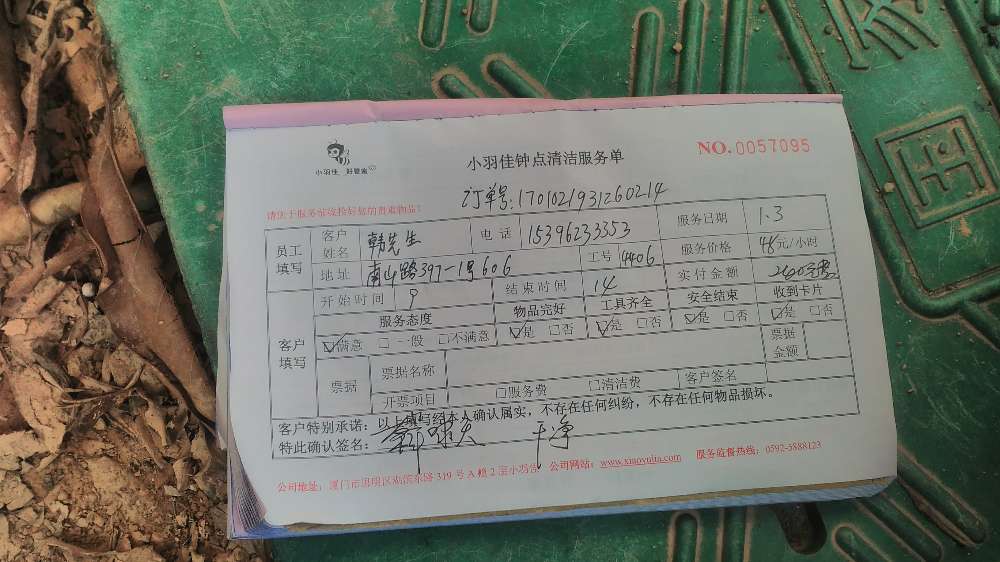 小羽佳 好管家
小羽佳钟点清洁服务单
NO.0057095
订单号:1701021931260214
请您于服务前收拾好您的贵重物品!
员工填写 客户姓名 韩先生 电话 15396233353 服务日期 1.3
地址 南山路397-1号606 工号 4406 服务价格 48元/小时
开始时间 9 结束时间 14 实付金额 240
客户填写 服务态度 物品完好 工具齐全 安全结束 收到卡片
☑满意 □一般 □不满意 ☑是 □否 ☑是 □否 ☑是 □否 ☑是 □否
票据 票据名称 票据金额
开票项目 □服务费 □清洁费 客户签名
客户特别承诺:以上填写经本人确认属实,不存在任何纠纷,不存在任何物品损坏。
特此确认签名: 干净
公司地址:厦门市思明区湖滨东路319号A幢2层小羽佳 公司网站:www.xiaoyujia.com 服务监督热线:0592-5888123